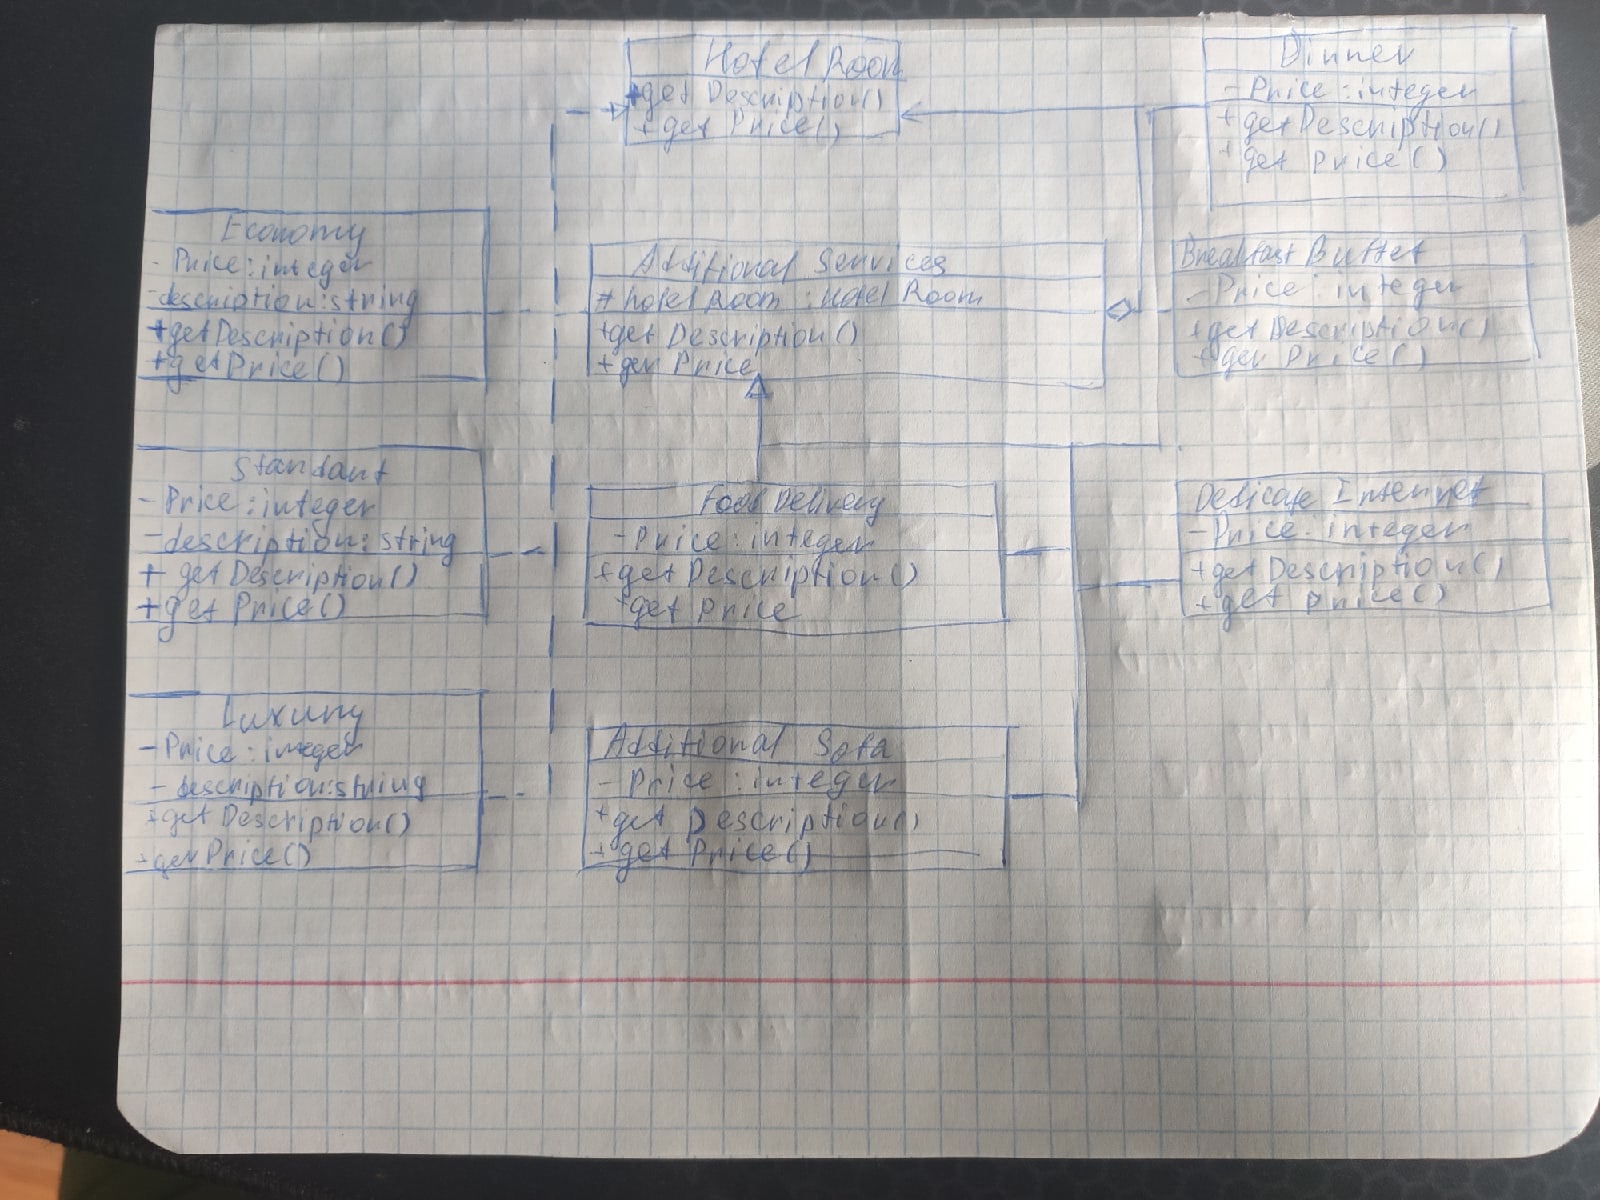 Hotel Room
+get Description()
+ get Price()
Dinner
- Price : integer
+ getDescription()
+ get price()
Economy
- Price: integer
-description:string
+getDescription()
+getPrice()
Additional Services
# hotel Room : Hotel Room
+get Description()
+ get Price
Breakfast Buffet
- Price : integer
+get Description()
+ get Price()
Standart
- Price : integer
- description: string
+ get Description()
+ get Price()
Food Delivery
- Price : integer
+get Description()
+get price
Dedicate Internet
- Price : integer
+ getDescription()
+ get price()
Luxury
- Price : integer
- description:string
+get Description()
+get Price()
Additional Sofa
- Price : integer
+get Description()
+ get Price()